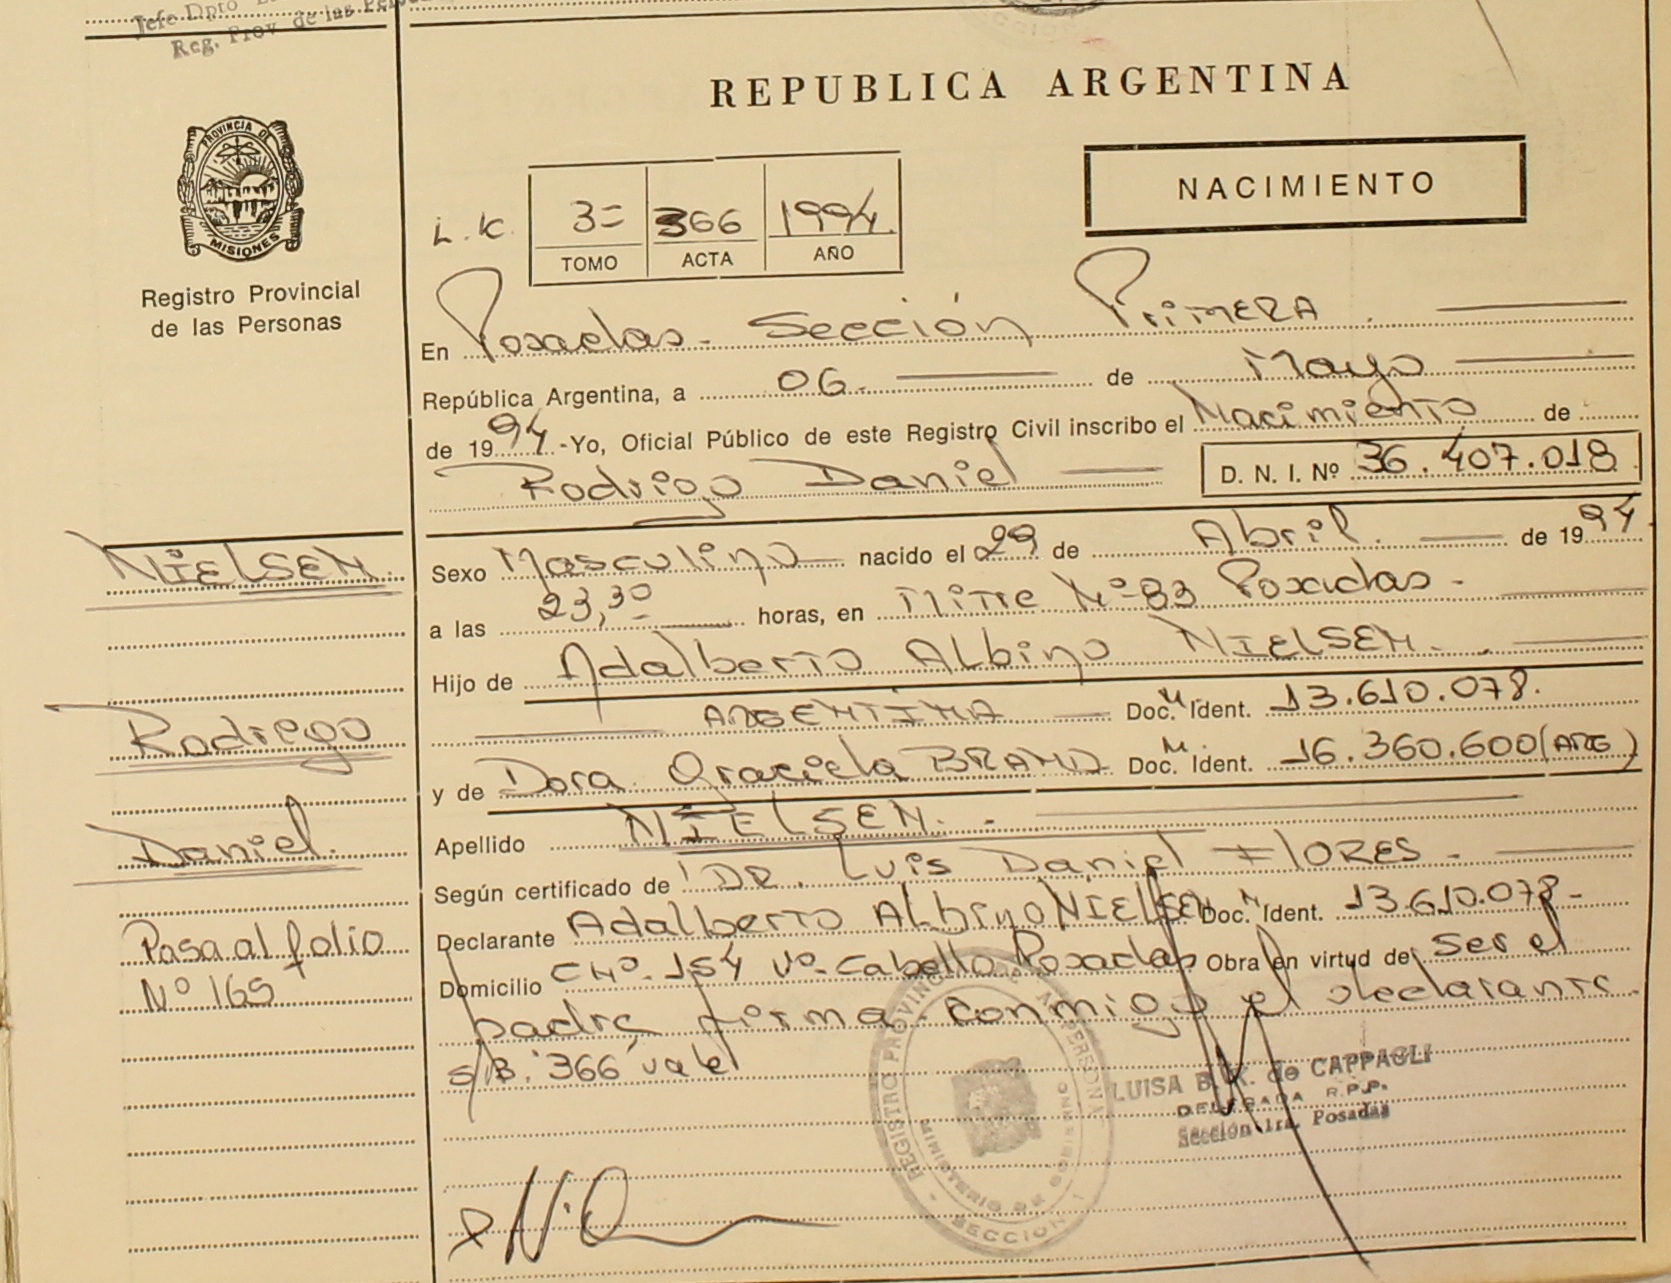 Jefe Dpto
Reg. Prov. de las
REPUBLICA ARGENTINA
PROVINCIA DE
MISIONES
Registro Provincial
de las Personas
NACIMIENTO
L.K. 3= 366 1994.
TOMO ACTA AÑO
En Posadas - Sección Primera
República Argentina, a 06 de Mayo
de 1994 -Yo, Oficial Público de este Registro Civil inscribo el Nacimiento de
Rodrigo Daniel D. N. I. Nº 36.407.018
NIELSEN
Sexo Masculino nacido el 29 de Abril. de 1994
a las 23,30 horas, en Mitre Nº 83 Posadas -
Hijo de Adalberto Albino NIELSEN.
ARGENTINA Doc. M. Ident. 13.610.078.
Rodrigo
y de Dora Graciela BRAND Doc. M. Ident. 16.360.600 (ARG)
Apellido NIELSEN. -
Daniel.
Según certificado de DR. Luis Daniel FLORES -
Declarante Adalberto Albino NIELSEN Doc. M Ident. 13.610.078-
Pasa al folio
Nº 165
Domicilio CHº. 154 Vº. Cabello Posadas Obra en virtud de ser el
padre firma conmigo el declarante.
s/B. "366" vale
REGISTRO PROVINCIAL DE LAS PERSONAS
MINISTERIO DE GOBIERNO
- SECCION 1
LUISA B. K. de CAPPAGLI
DELEGADA R.P.P.
Sección 1ra. Posadas